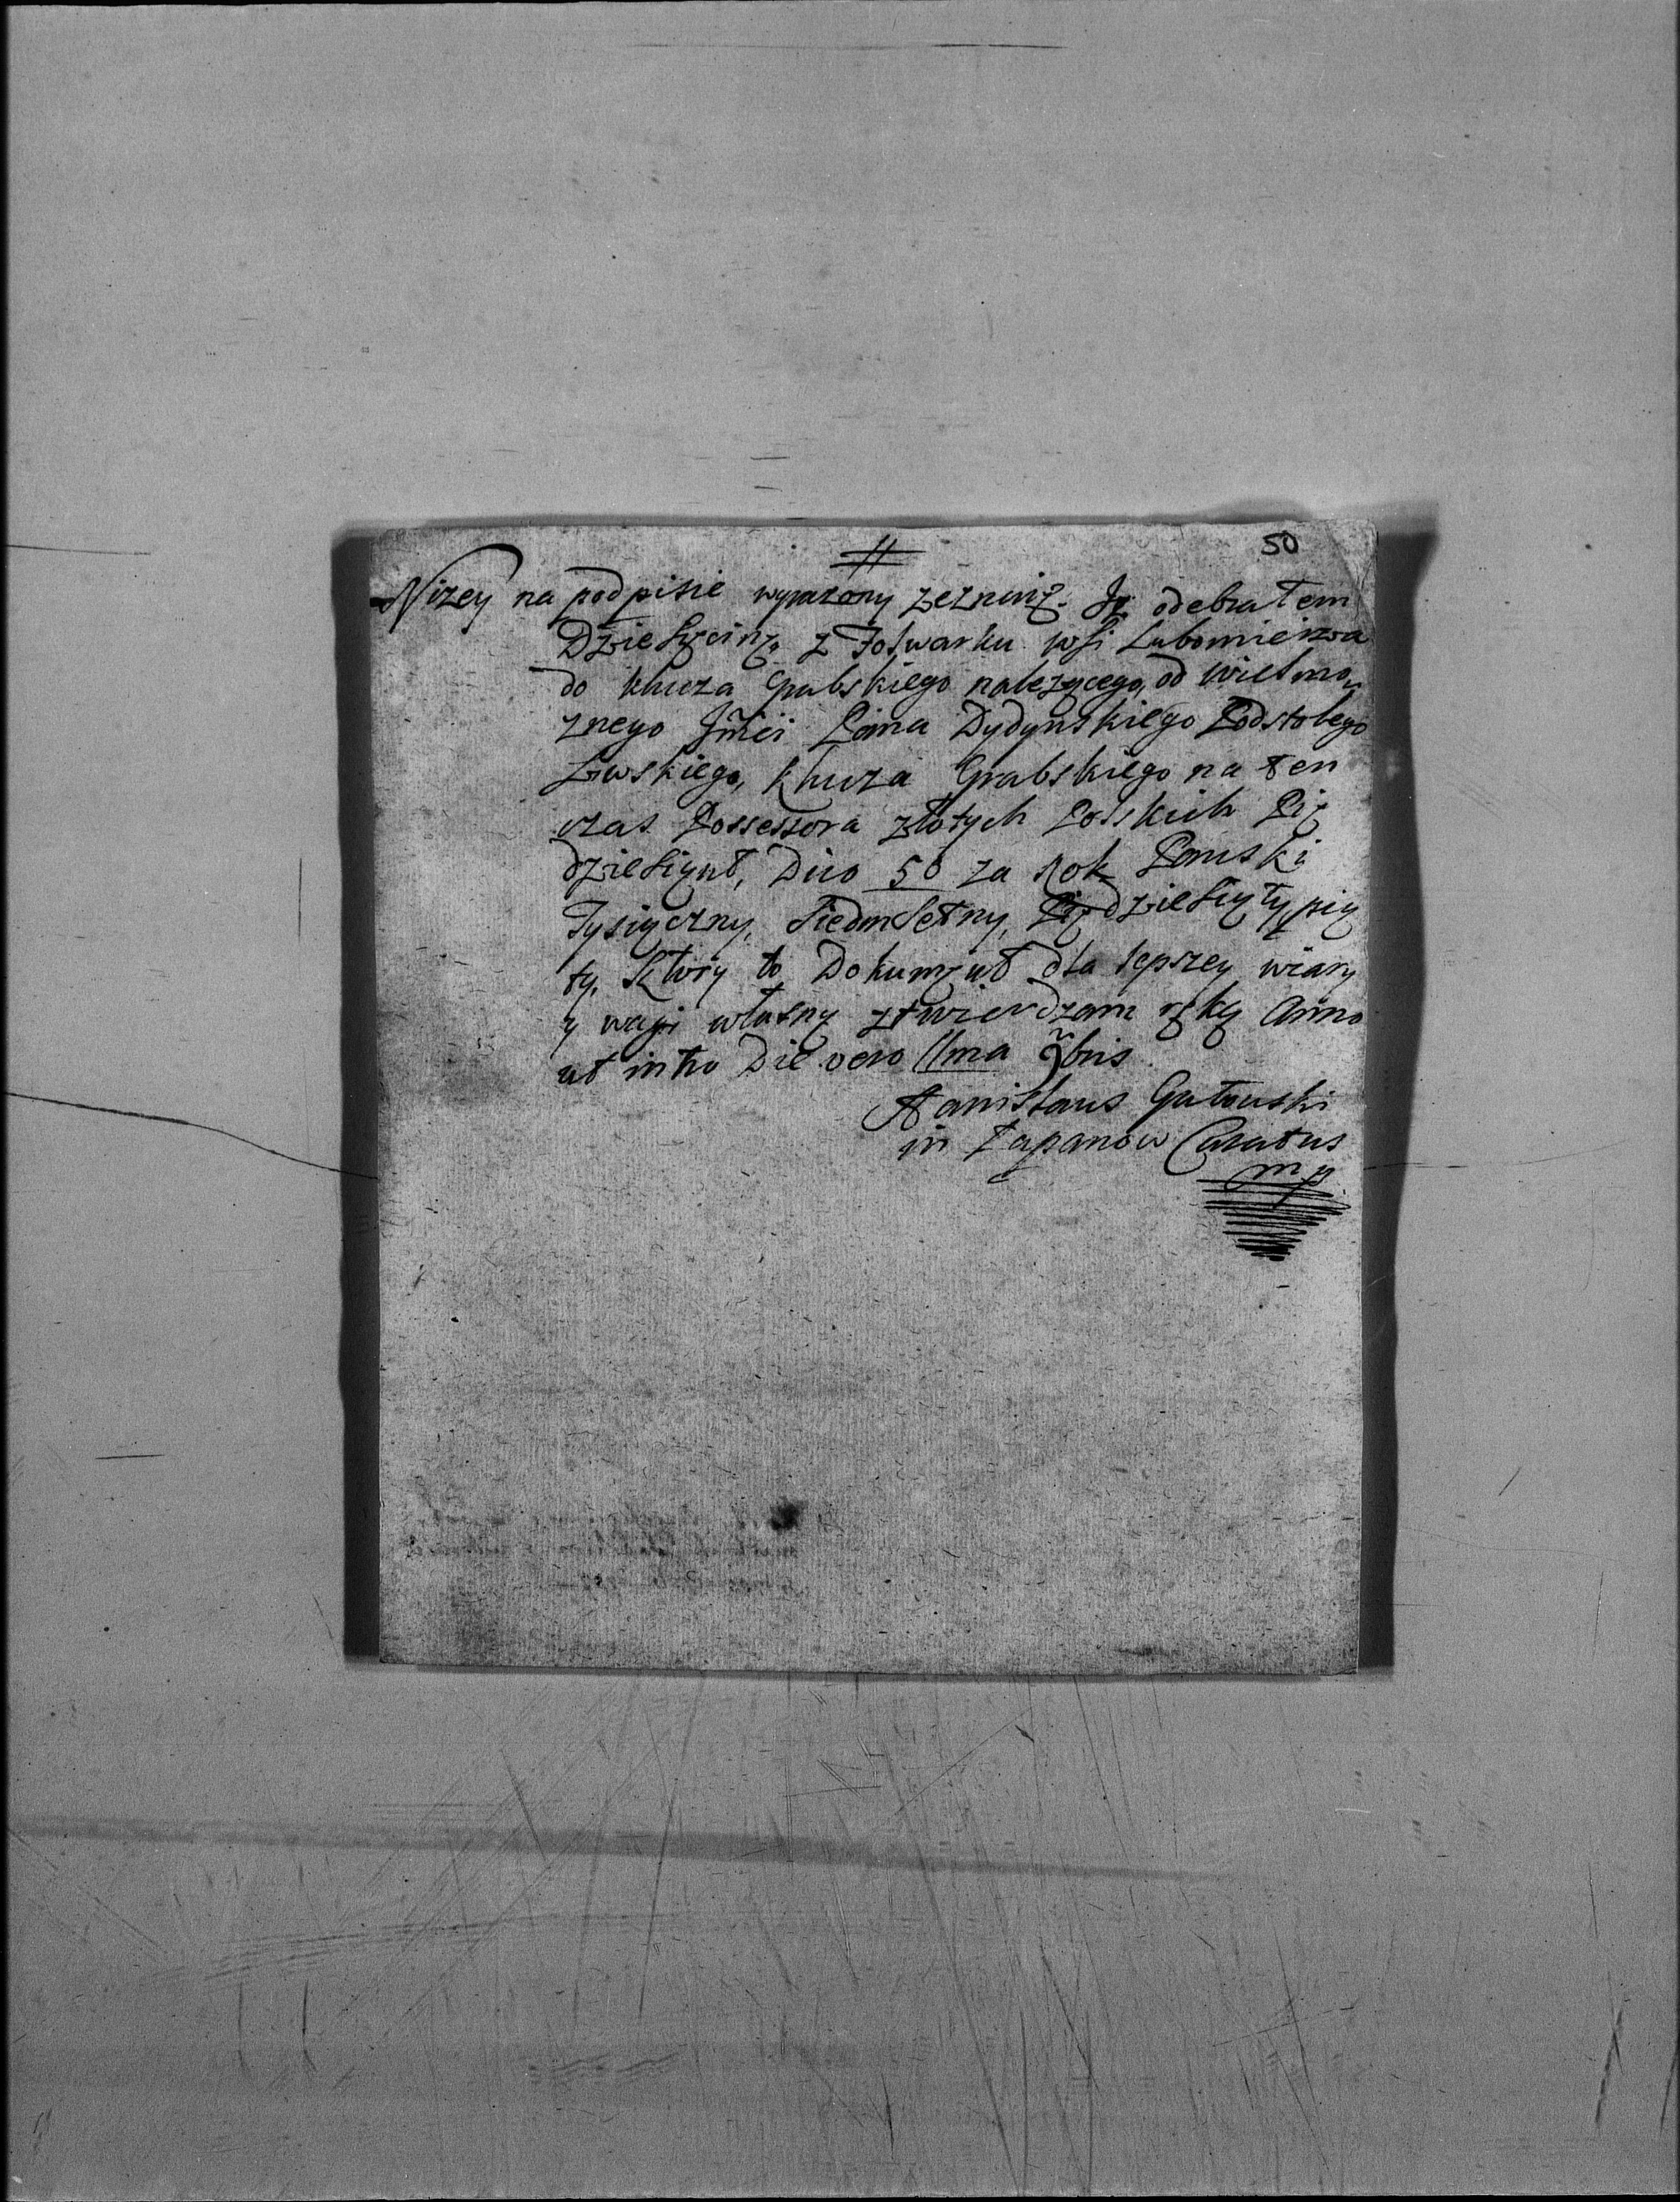 50
Nizey na podpisie wyrazony zeznuię. Iż odebrałem
Dziesięcinę z Folwarku wsi Lubomierza
do klucza Grabskiego należącego, od Wielmo-
znego Jmci Pana Dydynskiego Podstolego
Lwskiego, klucza Grabskiego na ten
czas Possessora złotych Polskich Pię
dziesiąt, Dico 50 za Rok Panski
Tysiączny, Siedmsetny, Pięćdziesiąty pią
ty. Ktory to Dokumęnt dla lepszey wiary
y wagi własną ztwierdzam ręką Anno
ut intro Die vero 11ma Xbris
Stanislaus Gutowski
in Łapanow Curatus
mp